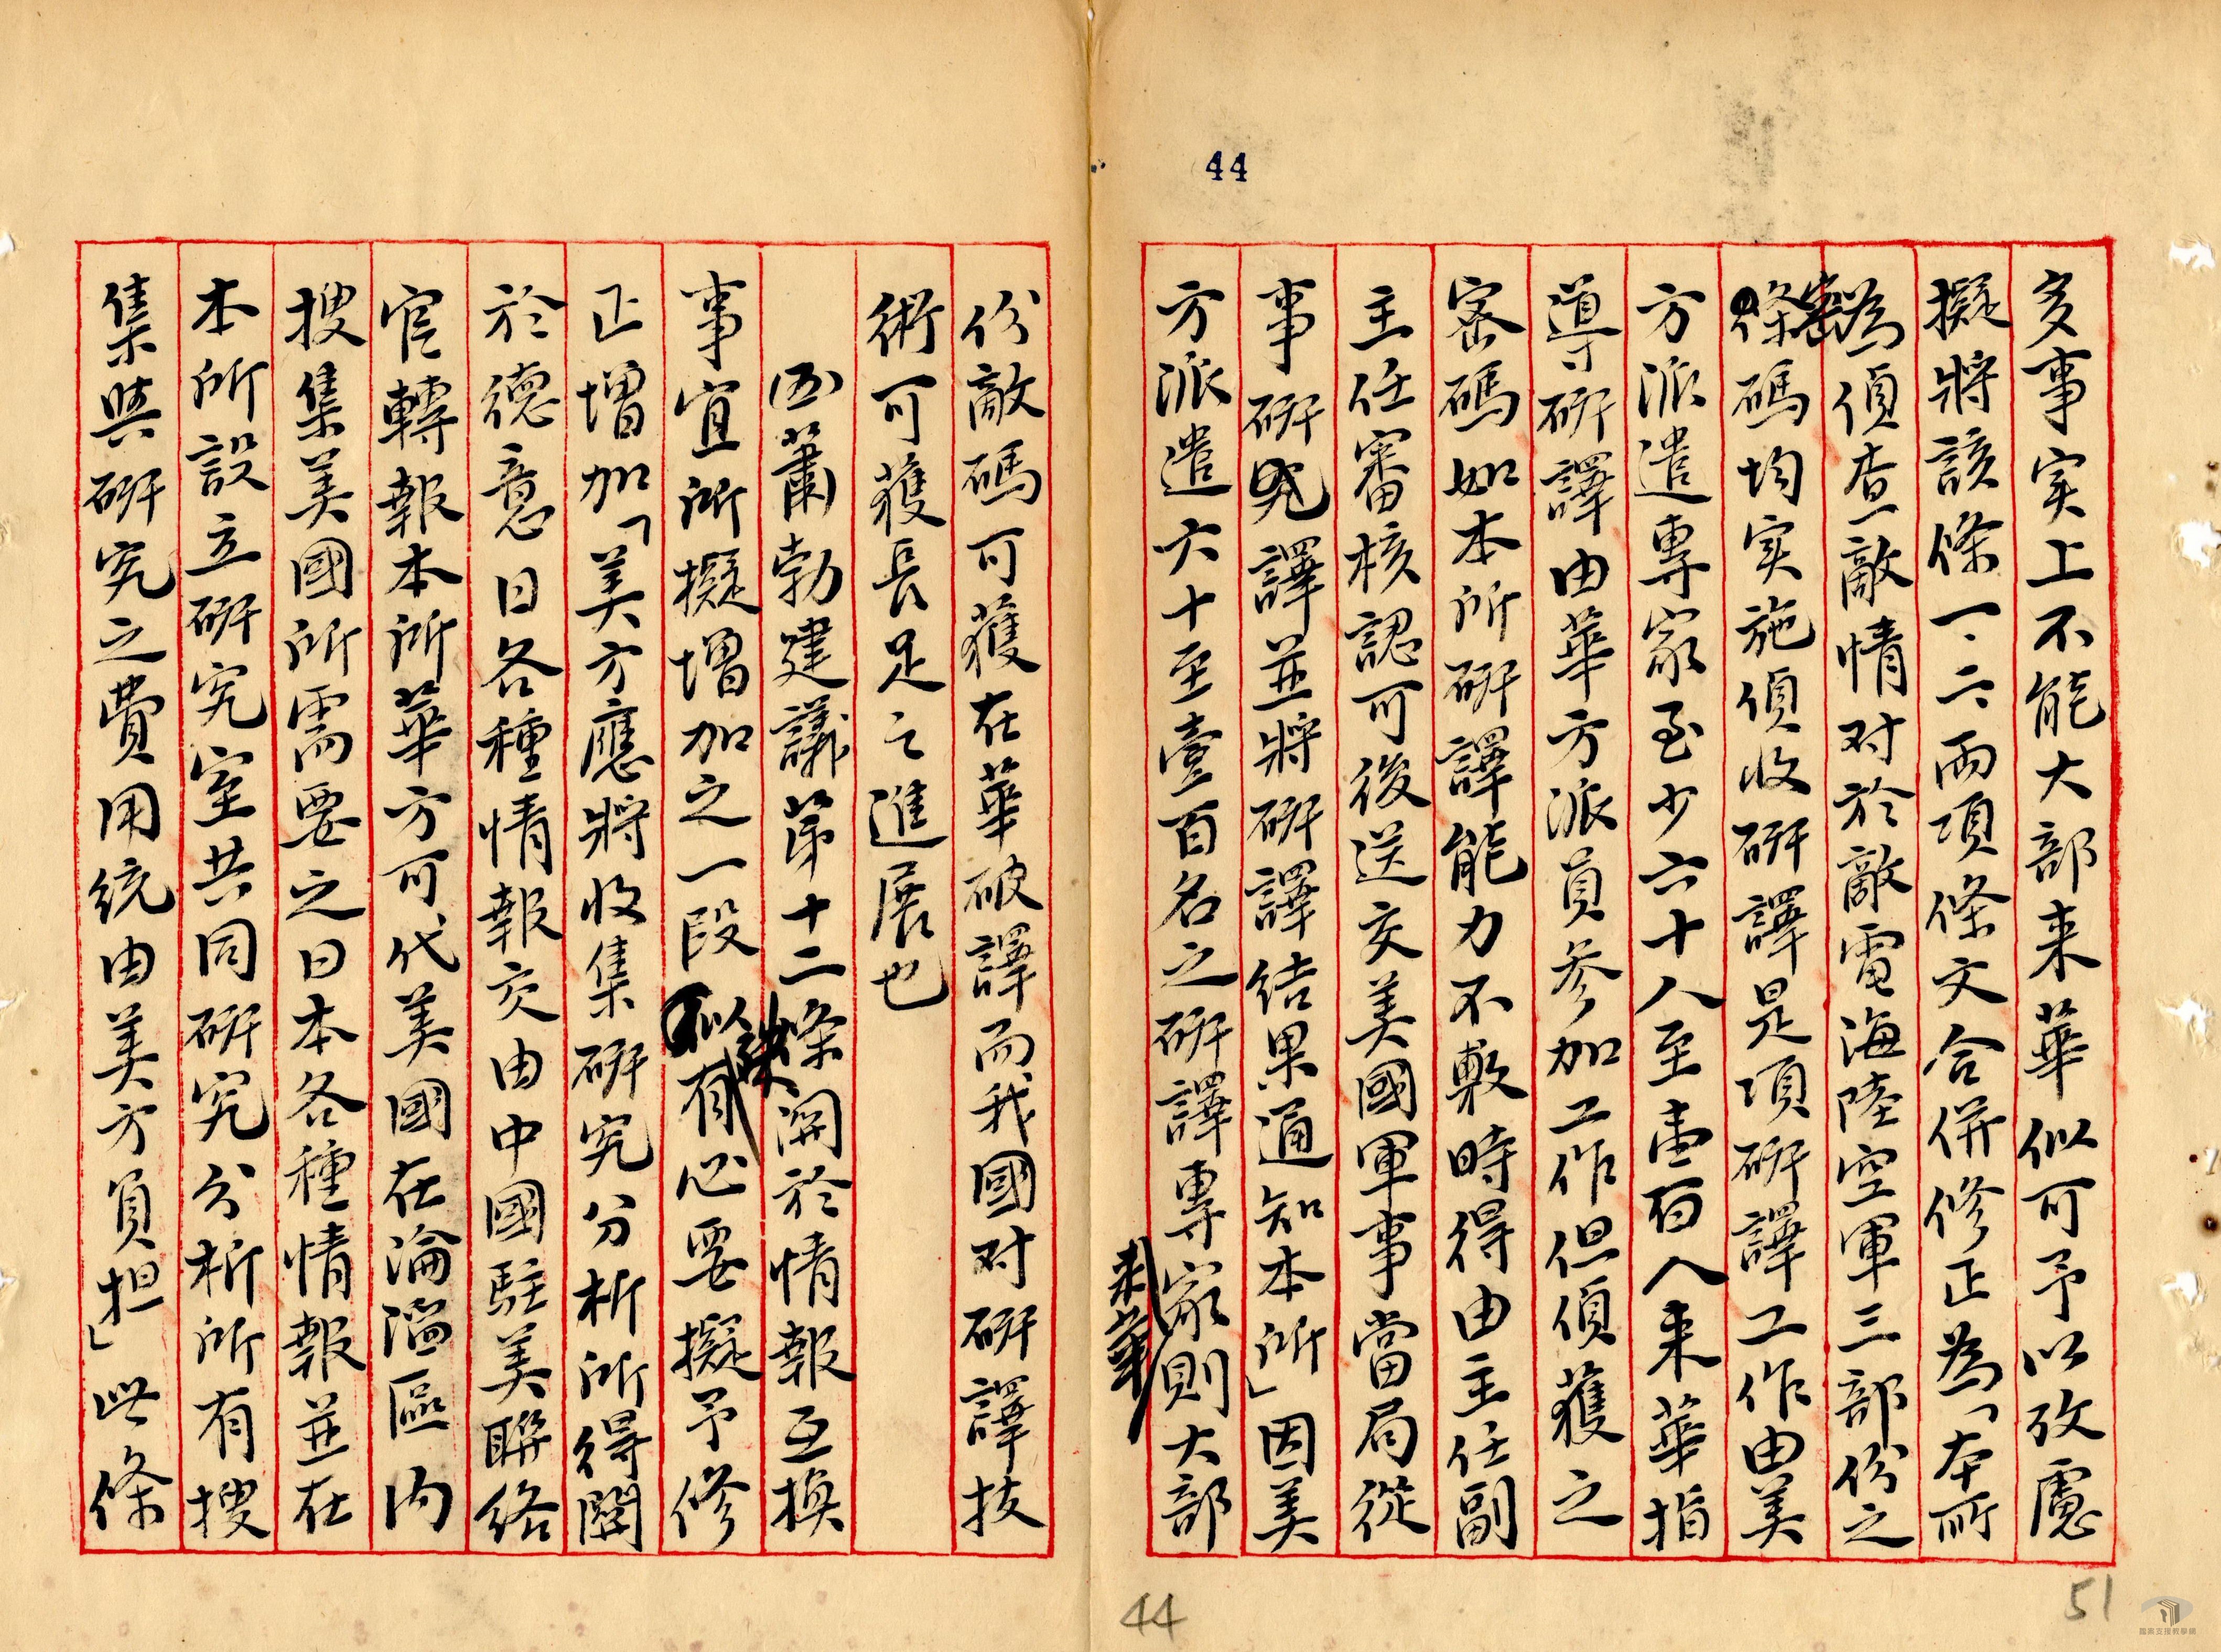 44
多事实上不能大部来華似可予以攷慮
擬將該條一、二兩項條文合併修正為「本所
為偵查敵情对於敵電海陸空軍三部份之
密碼均实施偵收研譯是項研譯工作由美
方派遣專家至少六十人至壹百人来華指
導研譯由華方派員参加工作但偵獲之
密碼如本所研譯能力不敷時得由主任副
主任審核認可後送交美國軍事當局從
事研究譯並將研譯結果通知本所」因美
方派遣六十至壹百名之研譯專家則大部
来華
份敵碼可獲在華破譯而我國对研譯技
術可獲長足之進展也
四蕭勃建議第十二條関於情報互換
事宜所擬增加之一段似有必要擬予修
正增加「美方應將收集研究分析所得関
於德意日各種情報交由中國駐美聯絡
官轉報本所華方可代美國在淪陷區內
搜集美國所需要之日本各種情報並在
本所設立研究室共同研究分析所有搜
集與研究之費用統由美方負担」此條
44
51